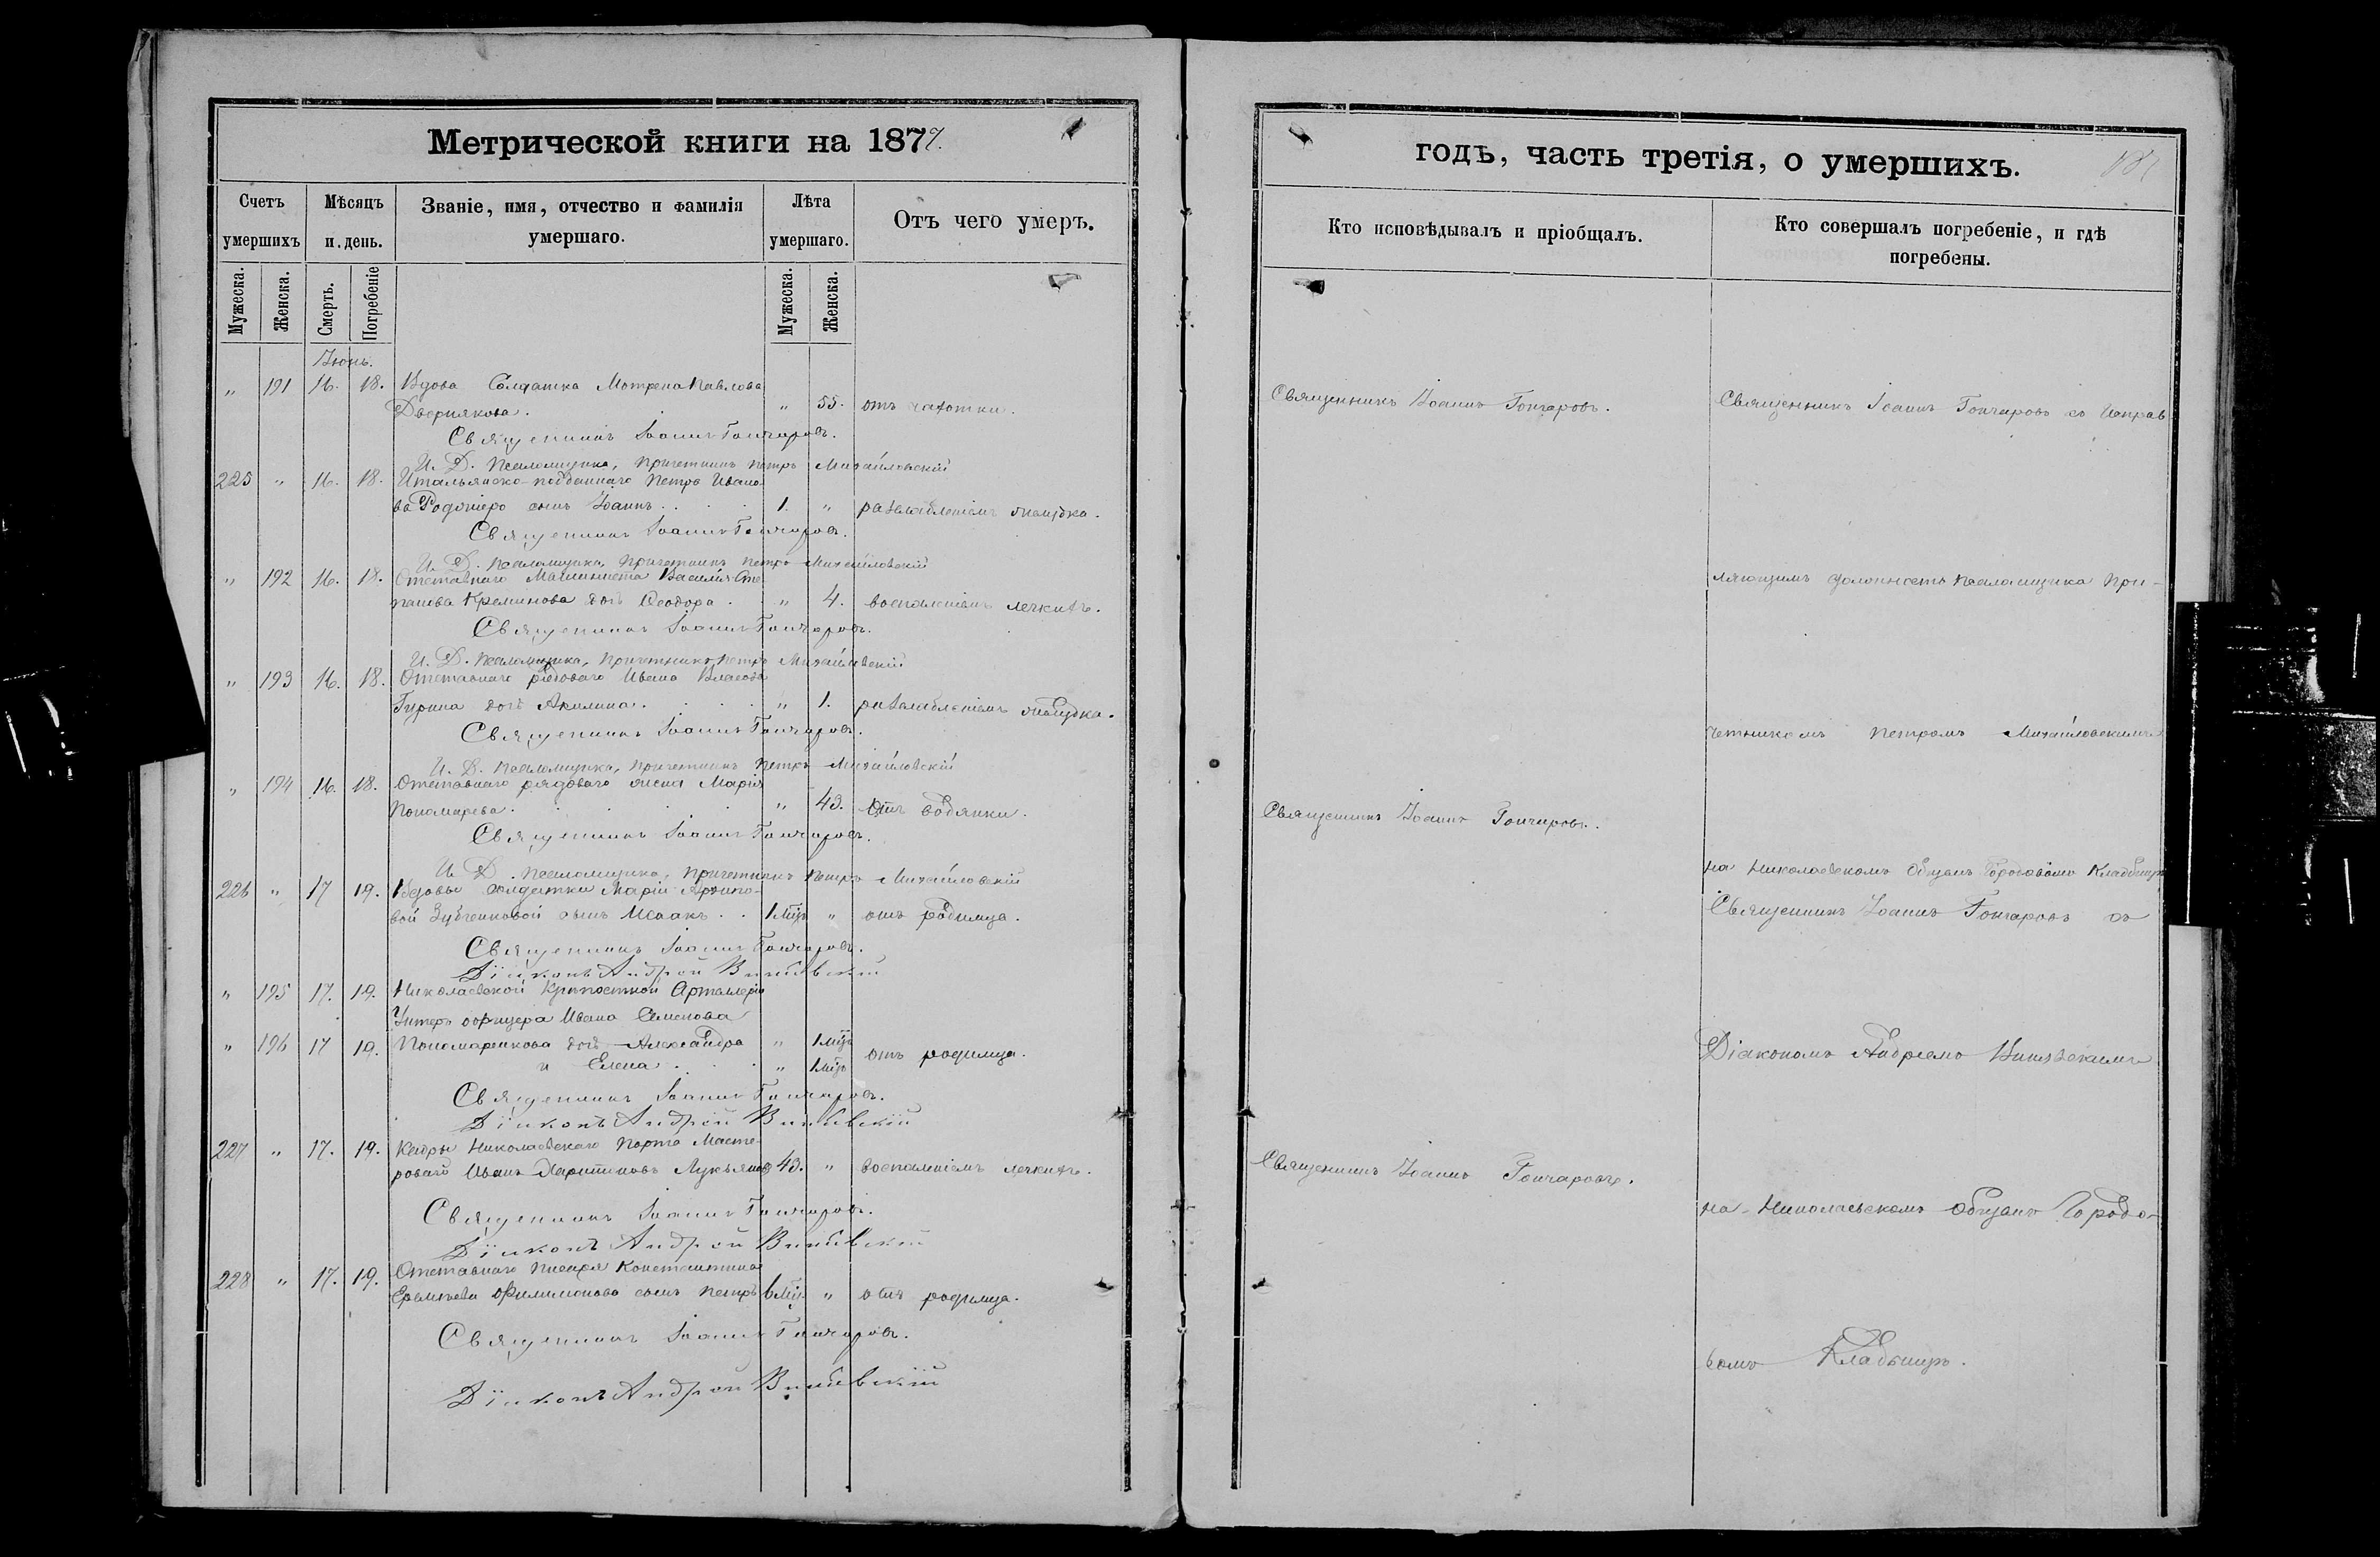 Метрической книги на 1877.
Счетъ умершихъ
Мѣсяцъ и день.
Званіе, имя, отчество и фамилія умершаго.
Лѣта умершаго.
Отъ чего умеръ.
Мужеска.
Женска.
Смерть.
Погребеніе
Мужеска.
Женска.
Іюнь.
„ 191 16. 18. Вдова Солдатка Мотрена Павлова
Дворнякова. „ 55. отъ чахотки.
Священникъ Іоаннъ Гончаровъ.
И. Д. Псаломщика, Причетникъ Петръ Михайловскій
225 „ 16. 18. Итальянско-подданнаго Петра Ивано-
ва сынъ Іоаннъ. 1. „ разслабленіемъ желудка.
Священникъ Іоаннъ Гончаровъ.
И. Д. Псаломщика, Причетникъ Петръ Михайловскій
„ 192 16. 18. Отставнаго Машиниста Василія Сте-
панова Креминова дочь Ѳеодора. „ 4. воспаленіемъ легкихъ.
Священникъ Іоаннъ Гончаровъ.
И. Д. Псаломщика, Причетникъ Петръ Михайловскій
„ 193 16. 18. Отставнаго рядоваго Ивана Власова
Гирина дочь Акилина. „ 1. разслабленіемъ желудка.
Священникъ Іоаннъ Гончаровъ.
И. Д. Псаломщика, Причетникъ Петръ Михайловскій
„ 194 16. 18. Отставнаго рядоваго жена Марія
Пономарева. „ 43. отъ водянки.
Священникъ Іоаннъ Гончаровъ.
И. Д. Псаломщика, Причетникъ Петръ Михайловскій
226 „ 17 19. Вдовы солдатки Маріи Архипо-
вой Зубченковой сынъ Исаакъ. 1 мѣс. „ отъ родимца.
Священникъ Іоаннъ Гончаровъ.
Діаконъ Андрей
„ 195 17. 19. Николаевской Крѣпостной Артиллеріи
Унтеръ офицера Ивана Семенова
„ 196 17 19. Пономаренкова дочь Александра „ 1 мѣс.
и Елена. „ 1 мѣс. отъ родимца.
Священникъ Іоаннъ Гончаровъ.
Діаконъ Андрей
227 „ 17. 19. Кадры Николаевскаго порта Масте-
роваго Иванъ Харитоновъ Лукьяновъ 43. „ воспаленіемъ легкихъ.
Священникъ Іоаннъ Гончаровъ.
Діаконъ Андрей
228 „ 17. 19. Отставнаго писаря Константина
Еремѣева Филимонова сынъ Петръ 6 мѣс. „ отъ родимца.
Священникъ Іоаннъ Гончаровъ.
Діаконъ Андрей
годъ, часть третія, о умершихъ.
Кто исповѣдывалъ и пріобщалъ.
Кто совершалъ погребеніе, и гдѣ погребены.
Священникъ Іоаннъ Гончаровъ.
Священникъ Іоаннъ Гончаровъ съ Исправ
ляющимъ должность Псаломщика При-
четникомъ Петромъ Михайловскимъ
Священникъ Іоаннъ Гончаровъ.
на Николаевскомъ общемъ Городовомъ Кладбищѣ
Священникъ Іоаннъ Гончаровъ съ
Діакономъ Андреемъ
Священникъ Іоаннъ Гончаровъ.
на Николаевскомъ общемъ Городо-
вомъ Кладбищѣ.